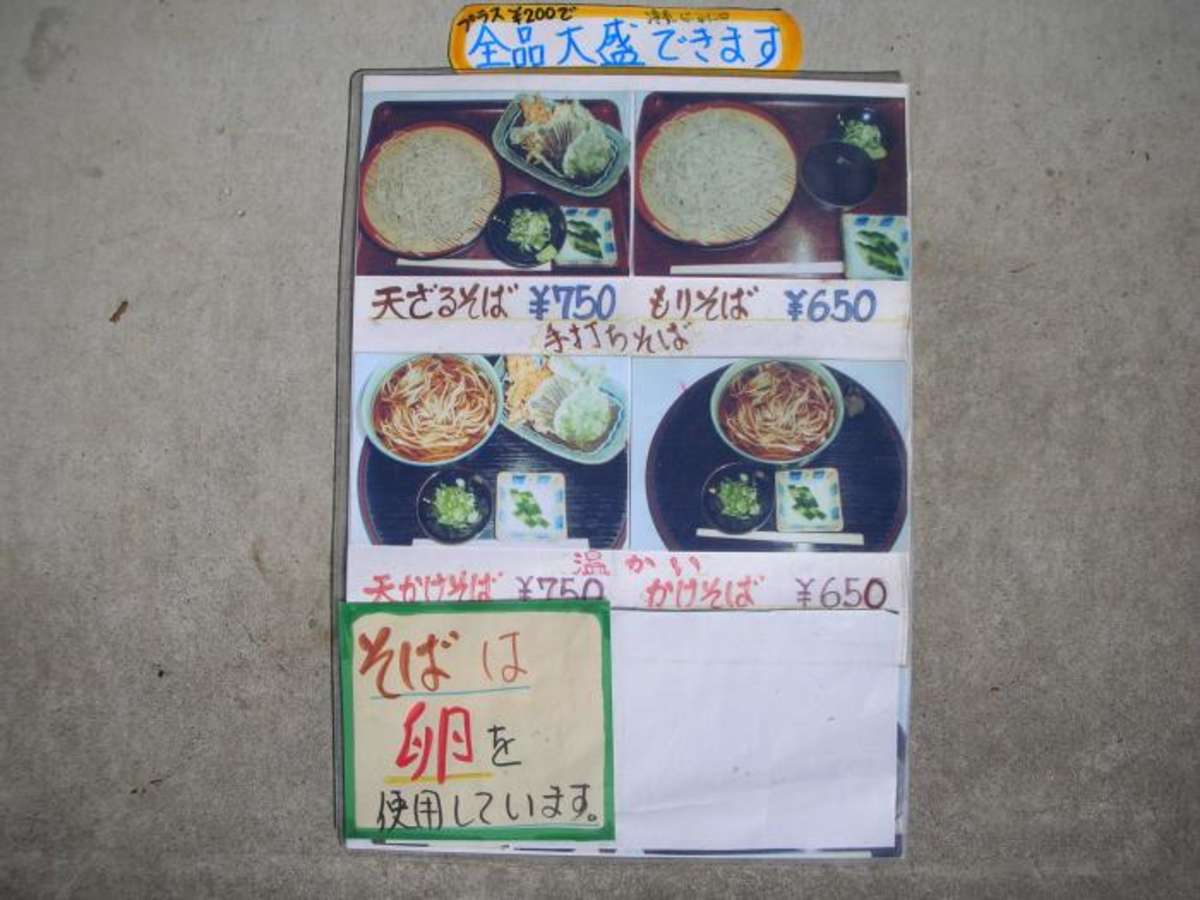 プラス¥200で
全品大盛できます
天ざるそば ¥750 もりそば ¥650
手打ちそば
温かい
天かけそば ¥750 かけそば ¥650
そばは
卵を
使用しています。